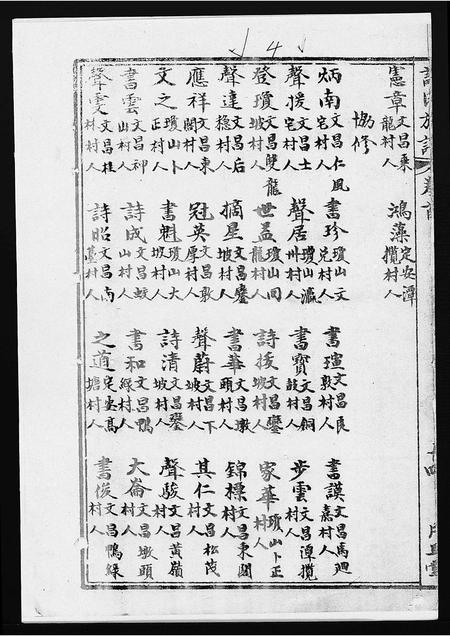 4
憲章文昌東龍村人 鴻藻定安潭攬村人
協修
炳南文昌仁風宅村人 書珍瓊山文兌村人 書瑄文昌良敦村人 書謨文昌禹廻嘉村人
聲援文昌士宅村人 聲居瓊山瀛州村人 書寶文昌銅鼓村人 步雲文昌潭攬村人
登瓊文昌雙龍坡村人 世益瓊山同龍村人 詩援文昌鑾坡村人 家華瓊山卜正村人
聲達文昌后穩村人 摘星文昌鑾坡村人 書華文昌墩頭村人 錦標文昌東閣村人
應祥文昌東閣村人 冠英文昌敦厚村人 聲蔚文昌下坡村人 其仁文昌松茂村人
文之瓊山卜正村人 書魁瓊山大坡村人 詩清文昌鑾坡村人 聲駿文昌黃嶺村人
書雲文昌神山村人 詩成文昌蛟山村人 書和文昌鴨綠村人 大崙文昌墩頭村人
聲雯文昌桂林村人 詩昭文昌南臺村人 之道定安高塘村人 書俊文昌鴨綠村人